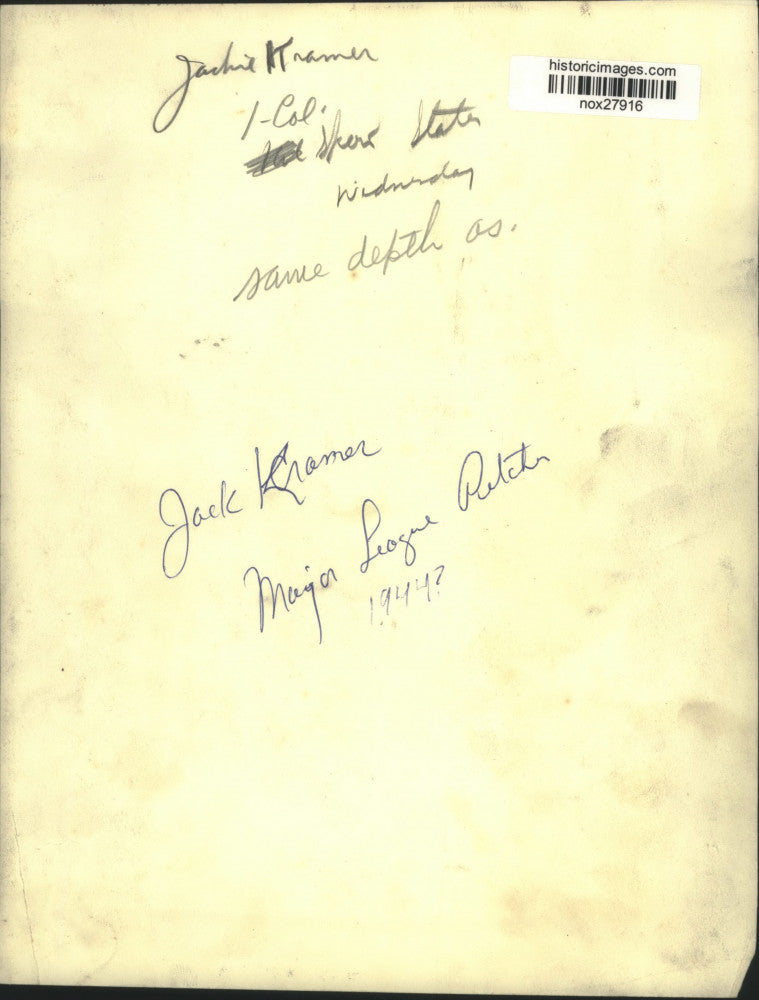 Jackie Kramer
historicimages.com
nox27916
1-Col.
States
Wednesday
same depth as.
Jack Kramer
Major League Pitcher
1944?